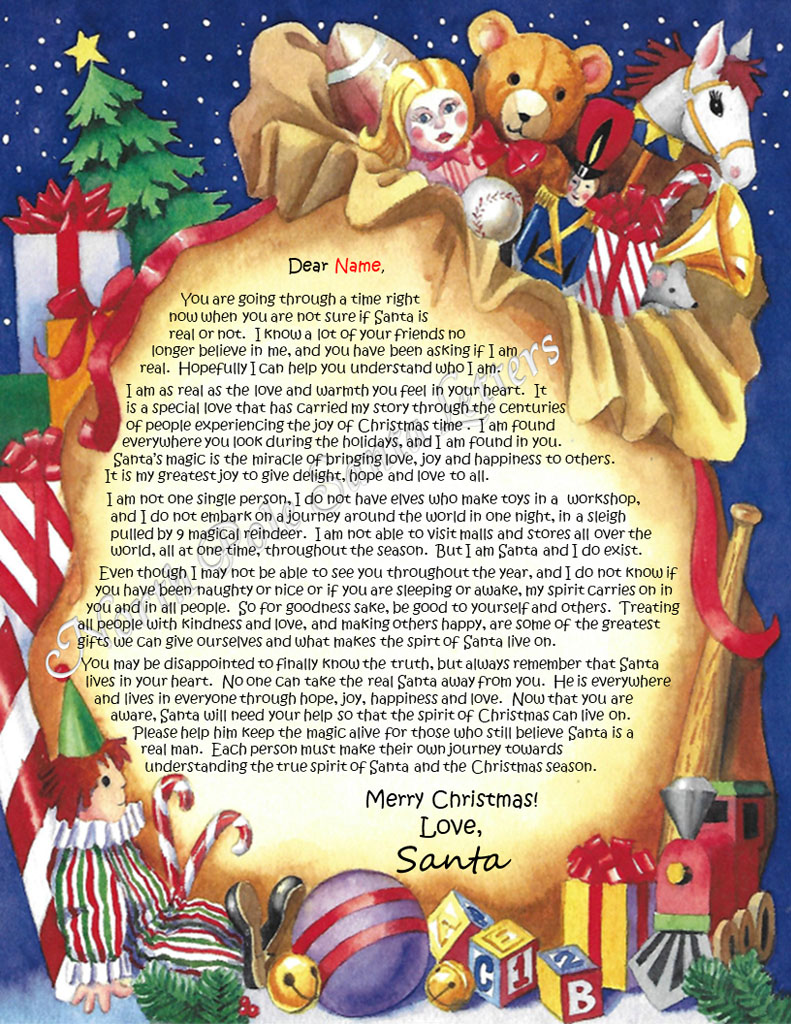 Dear Name,
You are going through a time right
now when you are not sure if Santa is
real or not. I know a lot of your friends no
longer believe in me, and you have been asking if I am
real. Hopefully I can help you understand who I am.
I am as real as the love and warmth you feel in your heart. It
is a special love that has carried my story through the centuries
of people experiencing the joy of Christmas time. I am found
everywhere you look during the holidays, and I am found in you.
Santa's magic is the miracle of bringing love, joy and happiness to others.
It is my greatest joy to give delight, hope and love to all.
I am not one single person, I do not have elves who make toys in a workshop,
and I do not embark on a journey around the world in one night, in a sleigh
pulled by 9 magical reindeer. I am not able to visit malls and stores all over the
world, all at one time, throughout the season. But I am Santa and I do exist.
Even though I may not be able to see you throughout the year, and I do not know if
you have been naughty or nice or if you are sleeping or awake, my spirit carries on in
you and in all people. So for goodness sake, be good to yourself and others. Treating
all people with kindness and love, and making others happy, are some of the greatest
gifts we can give ourselves and what makes the spirt of Santa live on.
You may be disappointed to finally know the truth, but always remember that Santa
lives in your heart. No one can take the real Santa away from you. He is everywhere
and lives in everyone through hope, joy, happiness and love. Now that you are
aware, Santa will need your help so that the spirit of Christmas can live on.
Please help him keep the magic alive for those who still believe Santa is a
real man. Each person must make their own journey towards
understanding the true spirit of Santa and the Christmas season.
Merry Christmas!
Love,
Santa
North Pole Santa Letters
A C E 2
C 1 B